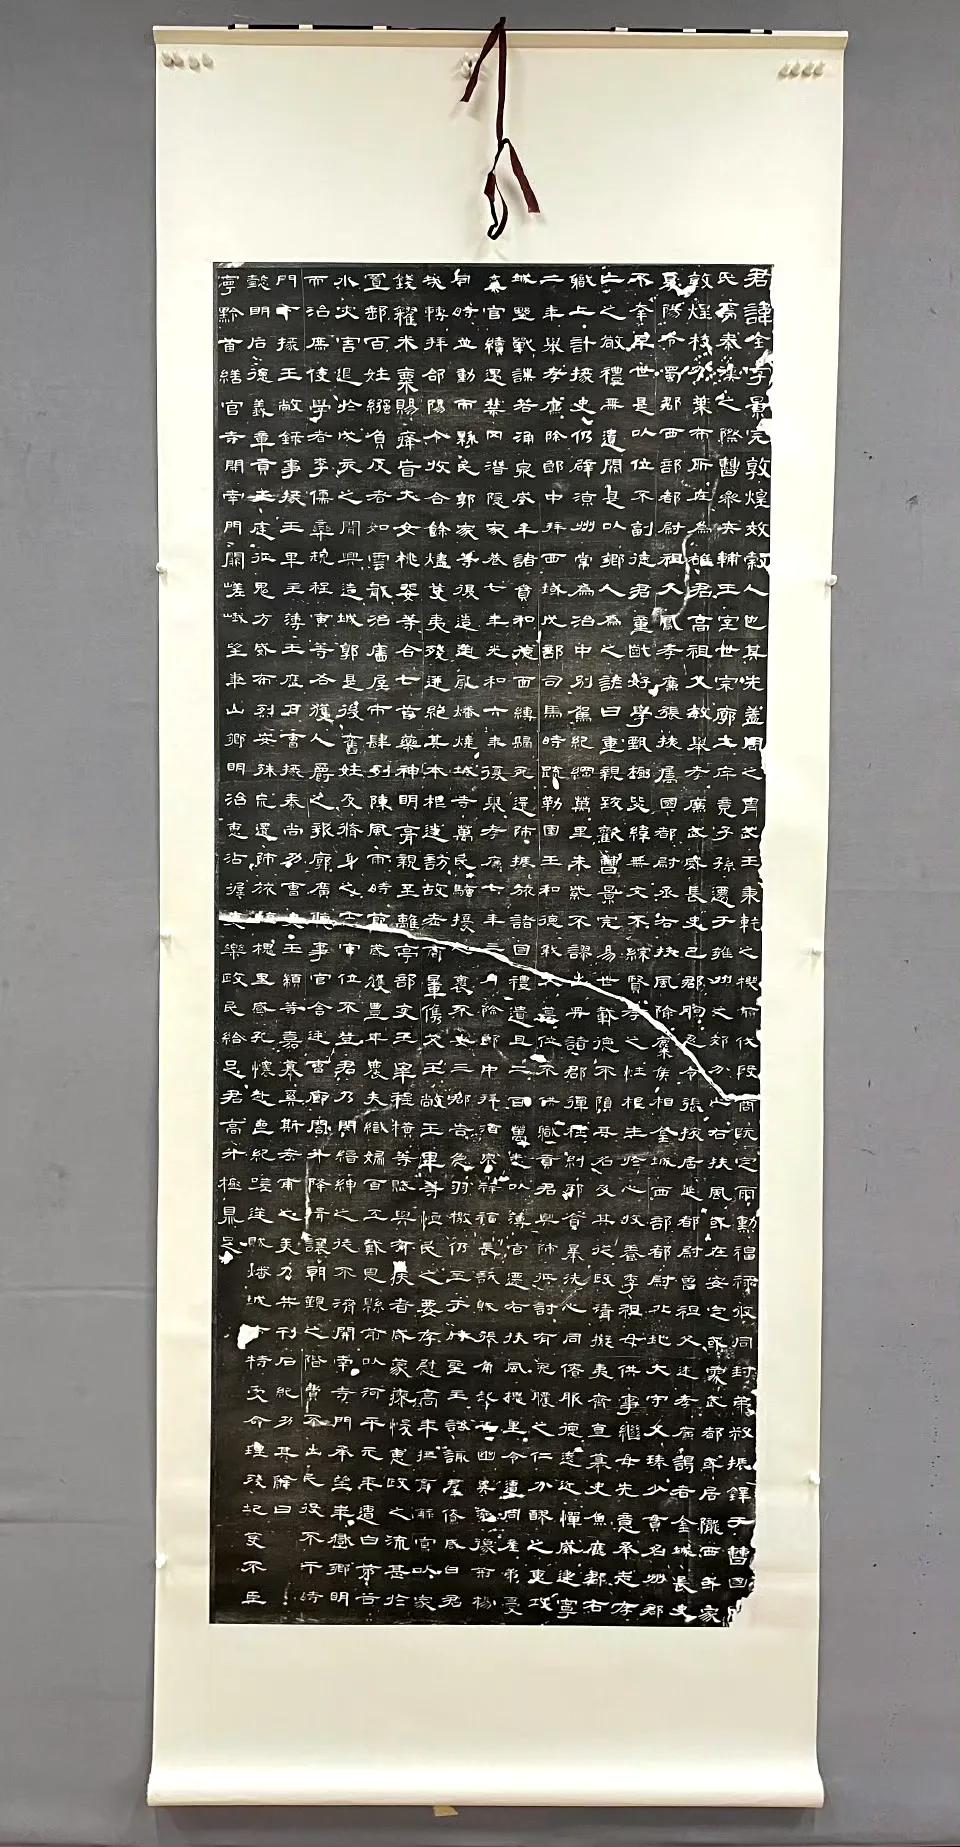 君諱全字景完敦煌效穀人也其先蓋周之胄武王秉乾之機翦伐殷商既定爾勳福祿攸同封弟叔振鐸于曹國因
氏焉秦漢之際曹參夾輔王室世宗廓土斥竟子孫遷于雍州之郊分止右扶風或在安定或處武都或居隴西或家
敦煌枝分葉布所在為雄君高祖父敏舉孝廉武威長史巴郡朐忍令張掖居延都尉曾祖父述孝廉謁者金城長史
夏陽令蜀郡西部都尉祖父鳳孝廉張掖屬國都尉丞右扶風隃麋侯相金城西部都尉北地大守父琫少貫名州郡
不幸早世是以位不副德君童齔好學甄極毖緯無文不綜賢孝之性根生於心收養季祖母供事繼母先意承志存
亡之敬禮無遺闕是以鄉人為之諺曰重親致歡曹景完易世載德不隕其名及其從政清擬夷齊直慕史魚歷郡右
職上計掾史仍辟涼州常為治中別駕紀綱萬里朱紫不謬出典諸郡彈枉糾邪貪暴洗心同僚服德遠近憚威建寧
二年舉孝廉除郎中拜西域戊部司馬時疏勒國王和德弒父篡位不供職貢君興師征討有吮膿之仁分醪之惠攻
城野戰謀若涌泉威牟諸賁和德面縛歸死還師振旅諸國禮遺且二百萬悉以薄官遷右扶風槐里令遭同產弟憂
棄官續遇禁罔潛隱家巷七年光和六年復舉孝廉七年三月除郎中拜酒泉祿福長訞賊張角起兵幽冀兗豫荊楊
同時並動而縣民郭家等復造逆亂燔燒城寺萬民騷擾人裹不安三郡告急羽檄仍至于時聖主諮諏群僚咸曰君
哉轉拜郃陽令收合餘燼芟夷殘迸絕其本根遂訪故老商量儁艾王敞王畢等恤民之要存慰高年撫育鰥寡以家
錢糴米粟賜癃盲大女桃婓等合七首藥神明膏親至離亭部吏王宰程橫等賦與有疾者咸蒙瘳悛惠政之流甚於
置郵百姓繈負反者如雲戢治廧屋市肆列陳風雨時節歲獲豐年農夫織婦百工戴恩縣前以河平元年遭白茅谷
水災害退於戊亥之間興造城郭是後舊姓及修身之士官位不登君乃閔縉紳之徒不濟開南寺門承望華嶽鄉明
而治庶使學者李儒欒規程寅等各獲人爵之報廓廣聽事官舍廷曹廊閣升降揖讓朝覲之階費不出民役不干時
門下掾王敞錄事掾王畢主簿王歷戶曹掾秦尚功曹史王顓等嘉慕奚斯考甫之美乃共刊石紀功其辭曰
懿明后德義章貢王庭征鬼方威布烈安殊荒還師旅臨槐里感孔懷赴喪紀嗟逆賊燔城市特受命理殘圮芟不臣
寧黔首繕官寺開南門闕嵯峨望華山鄉明治惠沾渥吏樂政民給足君高升極鼎足